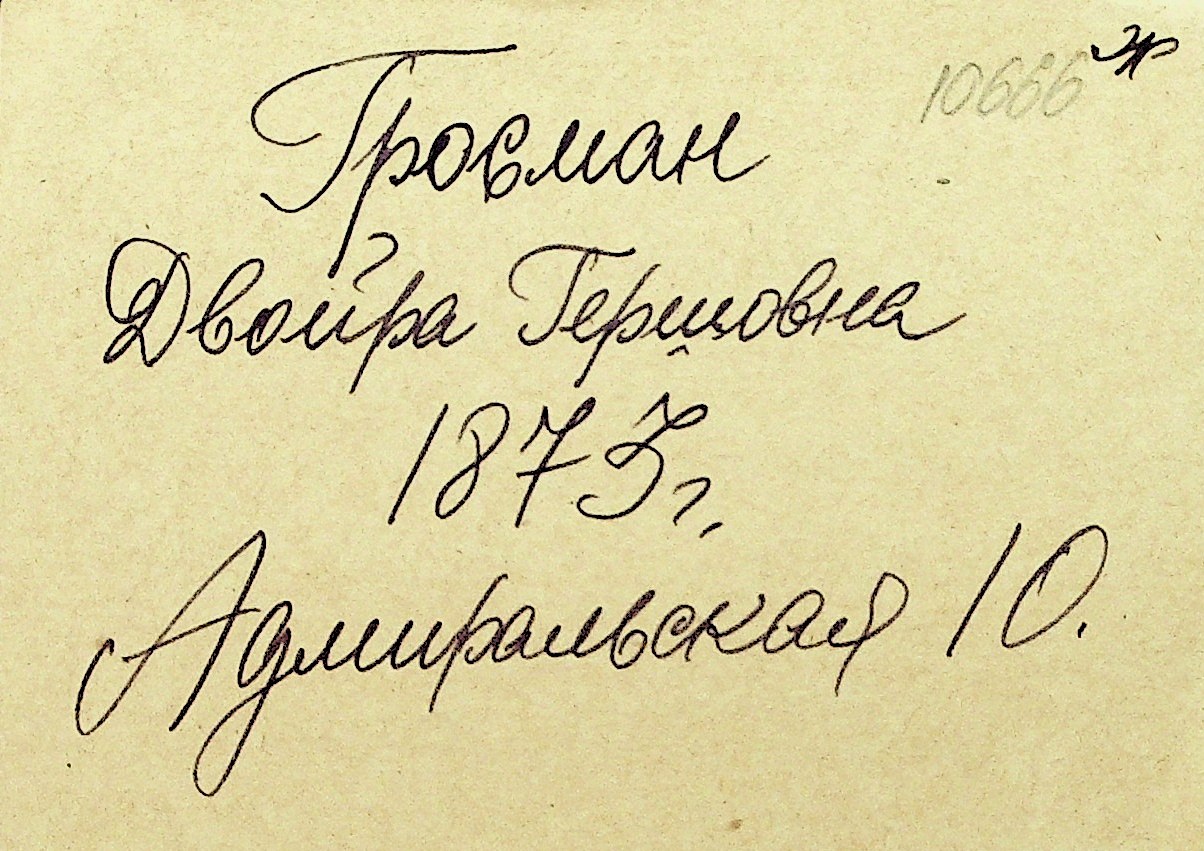 10666 Ж
Гросман
Двойра Герцовна
1873 г.
Адмиральская 10.